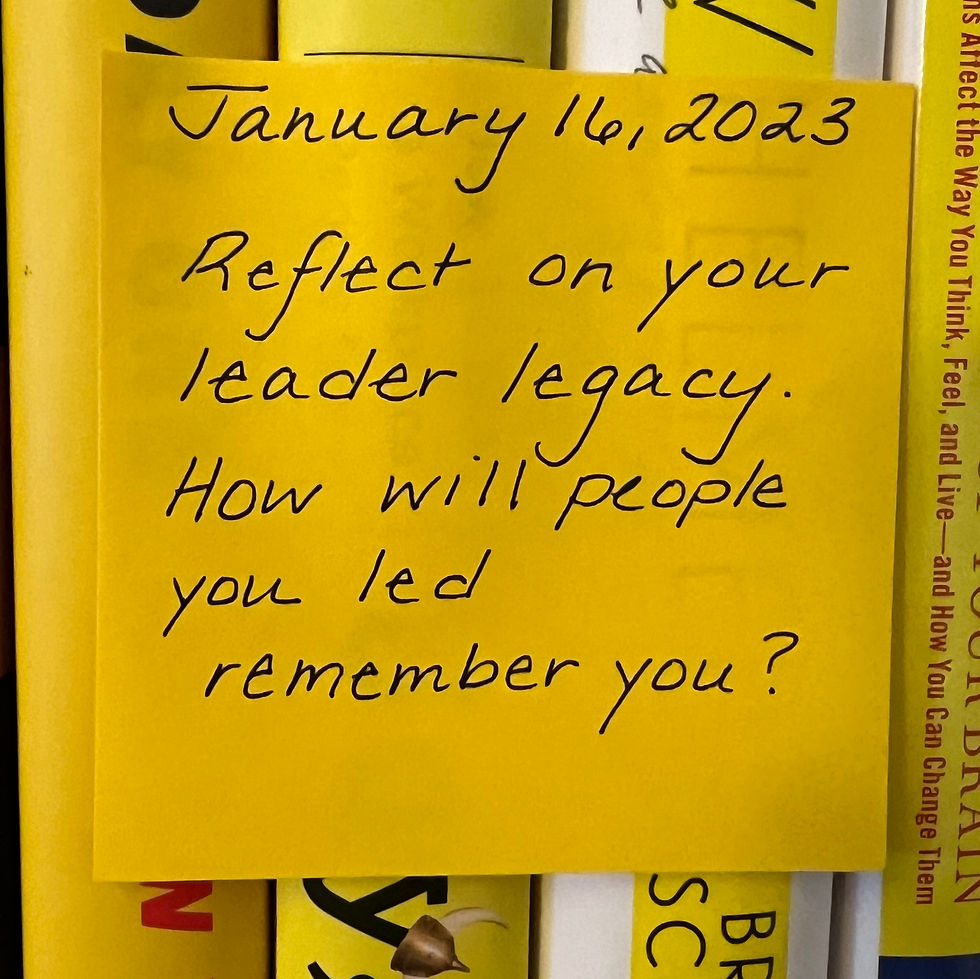 January 16, 2023
Reflect on your
leader legacy.
How will people
you led
remember you?
ns Affect the Way You Think, Feel, and Live—and How You Can Change Them
BRAIN
N
y
BR
SC